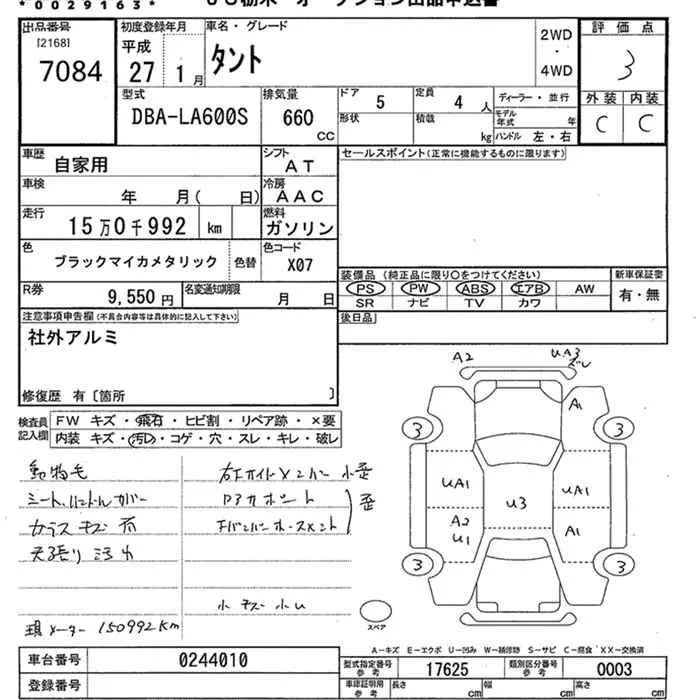 *0029163*
出品番号
[2168]
7084
初度登録年月
平成
27 1月
車名・グレード
タント
2WD
・
4WD
評価点
3
型式
DBA-LA600S
排気量
660
CC
ドア
5
定員
4人
ディーラー・並行
形状
積載
kg
モデル年式
年
ハンドル 左・右
外装 内装
C C
車歴
自家用
シフト
AT
セールスポイント(正常に機能するものに限ります)
車検
年 月( 日)
冷房
AAC
走行
15万0千992 km
燃料
ガソリン
色
ブラックマイカメタリック
色替
色コード
X07
装備品(純正品に限り○をつけてください)
新車保証書
PS PW ABS エアB AW
SR ナビ TV カワ
有・無
R券
9,550円
名変通知期限
月 日
後日品
注意事項申告欄(不具合内容等は具体的に記入して下さい)
社外アルミ
修復歴 有〔箇所 〕
検査員記入欄
FW キズ・飛石・ヒビ割・リペア跡・×要
内装 キズ・汚れ・コゲ・穴・スレ・キレ・破レ
動物毛
シート、ハンドルカバー
ガラスキズ有
天張り汚れ
現メーター 150992km
小キズ小U
A2
UA3
A1
3 3
UA1 UA1
U3
A2
U1
A1
3 3
スペア
A-キズ E-エクボ U-凹み W-補修跡 S-サビ C-腐食 ×X-交換済
車台番号
0244010
登録番号
型式指定番号
参考
17625
類別区分番号
参考
0003
車庫証明用
参考
長さ cm
幅 cm
高さ cm